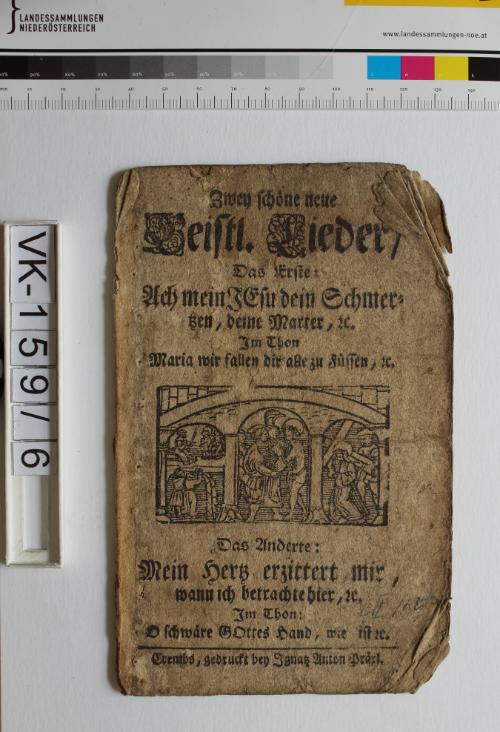 LANDESSAMMLUNGEN
NIEDERÖSTERREICH
www.landessammlungen-noe.at
VK-159/6
Zwey schöne neue
Geistl. Lieder,
Das Erste:
Ach mein JEsu dein Schmer-
tzen, deine Marter, ꝛc.
Im Thon
Maria wir fallen dir alle zu Füssen, ꝛc.
Das Anderte:
Mein Hertz erzittert mir,
wann ich betrachte hier, ꝛc.
Im Thon:
O schwäre GOttes Hand, wie ist ꝛc.
Crembs, gedruckt bey Ignatz Anton Präxl.